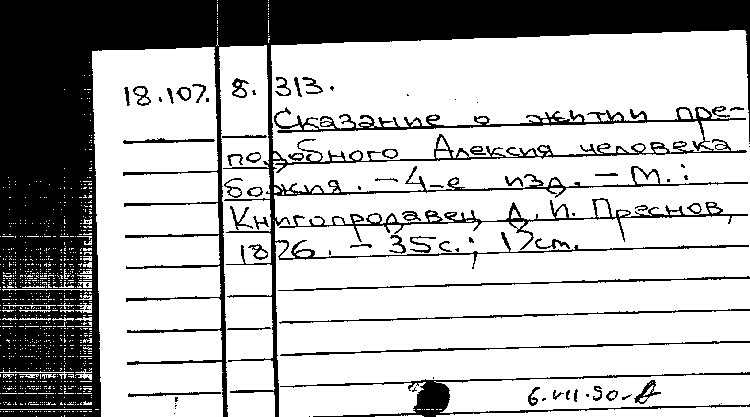 18.107. 8. 313.
Сказание о житии пре-
подобного Алексия человека
божия. – 4-е изд. – М.:
Книгопродавец Д. И. Преснов,
1876. – 35с.; 17см.
6.VII.90